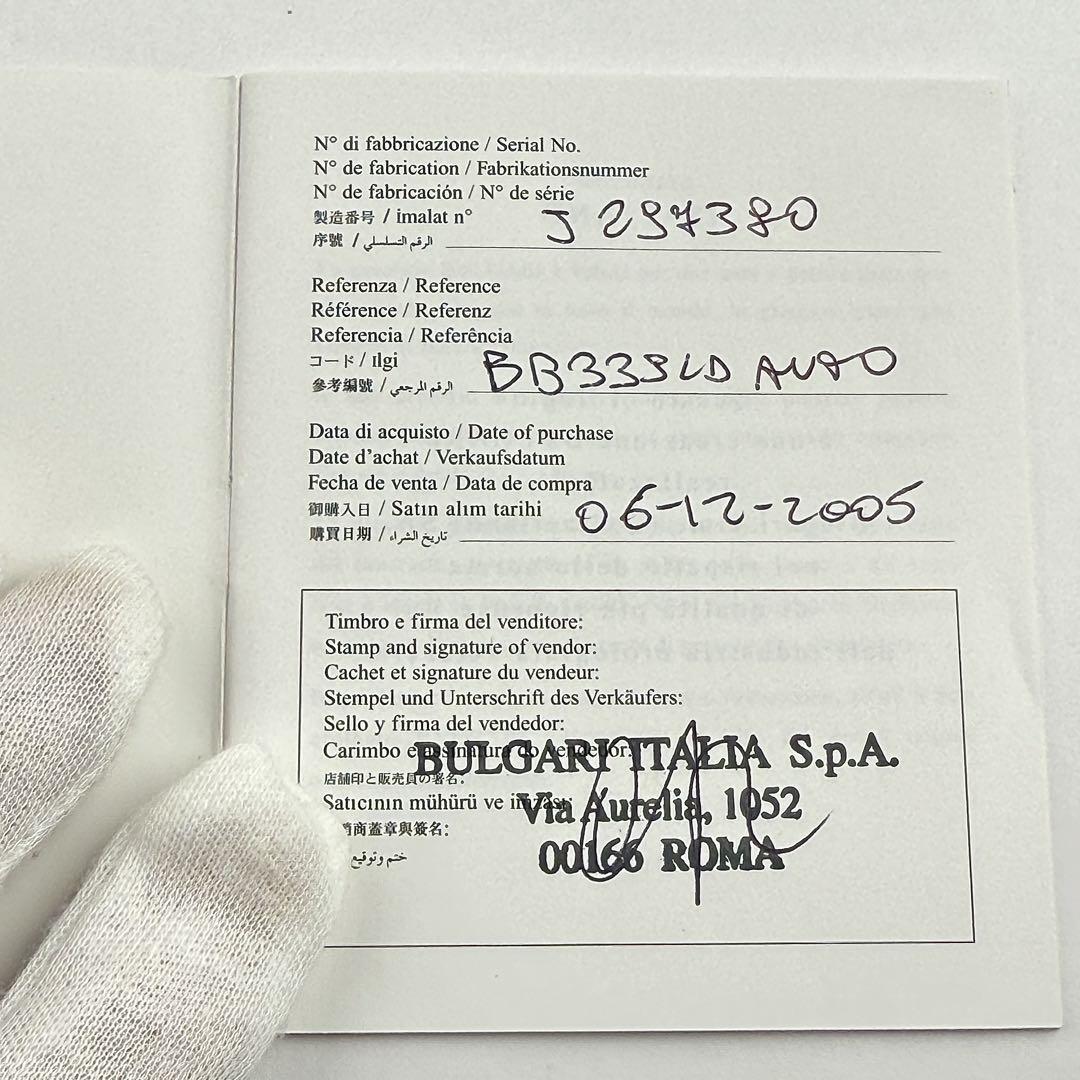 N° di fabbricazione / Serial No.
N° de fabrication / Fabrikationsnummer
N° de fabricación / N° de série
製造番号 / imalat n°
序號 / الرقم التسلسلي J 297380
Referenza / Reference
Référence / Referenz
Referencia / Referência
コード / Ilgi
參考編號 / الرقم المرجعي BB33SLD AUTO
Data di acquisto / Date of purchase
Date d'achat / Verkaufsdatum
Fecha de venta / Data de compra
御購入日 / Satın alım tarihi
購買日期 / تاريخ الشراء 06-12-2005
Timbro e firma del venditore:
Stamp and signature of vendor:
Cachet et signature du vendeur:
Stempel und Unterschrift des Verkäufers:
Sello y firma del vendedor:
Carimbo e assinatura do vendedor:
BULGARI ITALIA S.p.A.
店舗印と販売員の署名:
Satıcının mühürü ve imzası:
Via Aurelia, 1052
商蓋章與簽名:
00166 ROMA
ختم وتوقيع